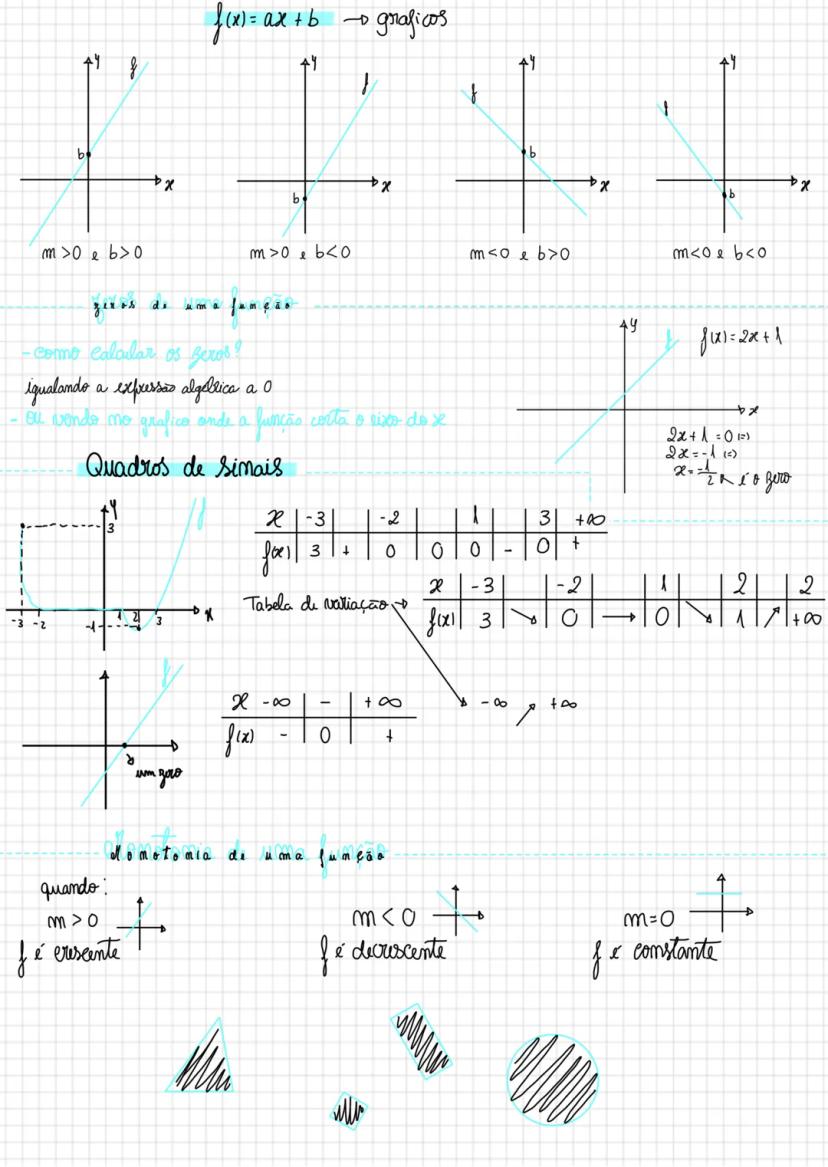 f(x) = ax + b → graficos
y f
b
x
m>0 e b>0
y f
b
x
m>0 e b<0
y f
b
x
m<0 e b>0
y f
b
x
m<0 e b<0
zeros de uma função
- como calcular os zeros?
igualando a expressão algébrica a 0
- ou vendo no grafico onde a função corta o eixo do x
y f
x
f(x) = 2x + 1
2x + 1 = 0 (=)
2x = -1 (=)
x = -1/2 ↖ é o zero
Quadros de sinais
y f
3
-3 -2 1 2 3 x
-1
x | -3 | | -2 | | 1 | | 3 | +∞
f(x) | 3 | + | 0 | 0 | 0 | - | 0 | +
Tabela de variação →
x | -3 | | -2 | | 1 | | 2 | | 2
f(x) | 3 | ↘ | 0 | → | 0 | ↘ | 1 | ↗ | +∞
-∞ ↗ +∞
f
um zero
x -∞ | - | +∞
f(x) - | 0 | +
Monotonia de uma função
quando:
m > 0
f é crescente
m < 0
f é decrescente
m = 0
f é constante